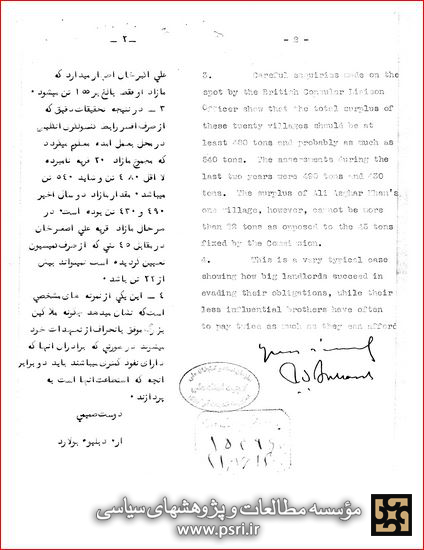 - 2 -
3. Careful enquiries made on the
spot by the British Consular Liaison
Officer show that the total surplus of
these twenty villages should be at
least 480 tons and probably as much as
540 tons. The assessments during the
last two years were 490 tons and 430
tons. The surplus of Ali Asghar Khan's
one village, however, cannot be more
than 22 tons as opposed to the 45 tons
fixed by the Commission.
4. This is a very typical case
showing how big landlords succeed in
evading their obligations, while their
less influential brothers have often
to pay twice as much as they can afford
- ٢ -
علی اکبر خان اصرار میدارد که
مازاد او فقط بالغ بر ١٥٥ تن میشود.
٣ - در نتیجه تحقیقات دقیق که
از طرف افسر رابط قنسولگری انگلیس
در محل بعمل آمده معلوم میگردد
که مجموع مازاد ٢٠ قریه نامبرده
لا اقل ٤٨٠ تن و شاید ٥٤٠ تن
میباشد. مقدار مازاد دو سال اخیر
٤٩٠ و ٤٣٠ تن بوده است. در
هر حال مازاد قریه علی اصغر خان
در مقابل ٤٥ تنی که از طرف کمیسیون
تعیین گردیده است نمیتواند بیش
از ٢٢ تن باشد.
٤ - این یکی از نمونه های مشخصی
است که نشان میدهد چگونه ملاکین
بزرگ موفق بانحراف از تعهدات خود
میشوند در صورتی که برادران آنها که
دارای نفوذ کمتری میباشند باید دو برابر
آنچه که استطاعت آنها است به
پردازند.
دوست صمیمی
ار. دبلیو. بولارد
مؤسسه مطالعات و پژوهشهای سیاسی
www.psri.ir